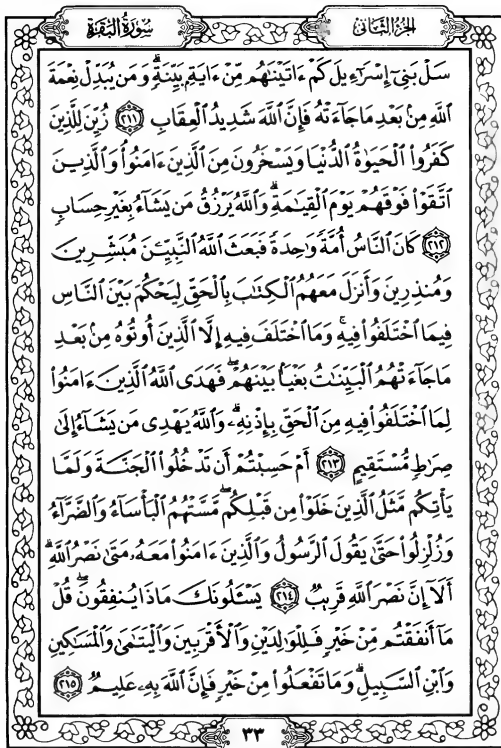 الجزء الثاني سورة البقرة
سَلْ بَنِىٓ إِسْرَٰٓءِيلَ كَمْ ءَاتَيْنَٰهُم مِّنْ ءَايَةٍۭ بَيِّنَةٍۗ وَمَن يُبَدِّلْ نِعْمَةَ
ٱللَّهِ مِنۢ بَعْدِ مَا جَآءَتْهُ فَإِنَّ ٱللَّهَ شَدِيدُ ٱلْعِقَابِ ٢١١ زُيِّنَ لِلَّذِينَ
كَفَرُوا۟ ٱلْحَيَوٰةُ ٱلدُّنْيَا وَيَسْخَرُونَ مِنَ ٱلَّذِينَ ءَامَنُوا۟ۘ وَٱلَّذِينَ
ٱتَّقَوْا۟ فَوْقَهُمْ يَوْمَ ٱلْقِيَٰمَةِۗ وَٱللَّهُ يَرْزُقُ مَن يَشَآءُ بِغَيْرِ حِسَابٍ
٢١٢ كَانَ ٱلنَّاسُ أُمَّةً وَٰحِدَةً فَبَعَثَ ٱللَّهُ ٱلنَّبِيِّـۧنَ مُبَشِّرِينَ
وَمُنذِرِينَ وَأَنزَلَ مَعَهُمُ ٱلْكِتَٰبَ بِٱلْحَقِّ لِيَحْكُمَ بَيْنَ ٱلنَّاسِ
فِيمَا ٱخْتَلَفُوا۟ فِيهِۚ وَمَا ٱخْتَلَفَ فِيهِ إِلَّا ٱلَّذِينَ أُوتُوهُ مِنۢ بَعْدِ
مَا جَآءَتْهُمُ ٱلْبَيِّنَٰتُ بَغْيًۢا بَيْنَهُمْۖ فَهَدَى ٱللَّهُ ٱلَّذِينَ ءَامَنُوا۟
لِمَا ٱخْتَلَفُوا۟ فِيهِ مِنَ ٱلْحَقِّ بِإِذْنِهِۦۗ وَٱللَّهُ يَهْدِى مَن يَشَآءُ إِلَىٰ
صِرَٰطٍ مُّسْتَقِيمٍ ٢١٣ أَمْ حَسِبْتُمْ أَن تَدْخُلُوا۟ ٱلْجَنَّةَ وَلَمَّا
يَأْتِكُم مَّثَلُ ٱلَّذِينَ خَلَوْا۟ مِن قَبْلِكُمۖ مَّسَّتْهُمُ ٱلْبَأْسَآءُ وَٱلضَّرَّآءُ
وَزُلْزِلُوا۟ حَتَّىٰ يَقُولَ ٱلرَّسُولُ وَٱلَّذِينَ ءَامَنُوا۟ مَعَهُۥ مَتَىٰ نَصْرُ ٱللَّهِۗ
أَلَآ إِنَّ نَصْرَ ٱللَّهِ قَرِيبٌ ٢١٤ يَسْـَٔلُونَكَ مَاذَا يُنفِقُونَۖ قُلْ
مَآ أَنفَقْتُم مِّنْ خَيْرٍ فَلِلْوَٰلِدَيْنِ وَٱلْأَقْرَبِينَ وَٱلْيَتَٰمَىٰ وَٱلْمَسَٰكِينِ
وَٱبْنِ ٱلسَّبِيلِۗ وَمَا تَفْعَلُوا۟ مِنْ خَيْرٍ فَإِنَّ ٱللَّهَ بِهِۦ عَلِيمٌ ٢١٥
٣٣